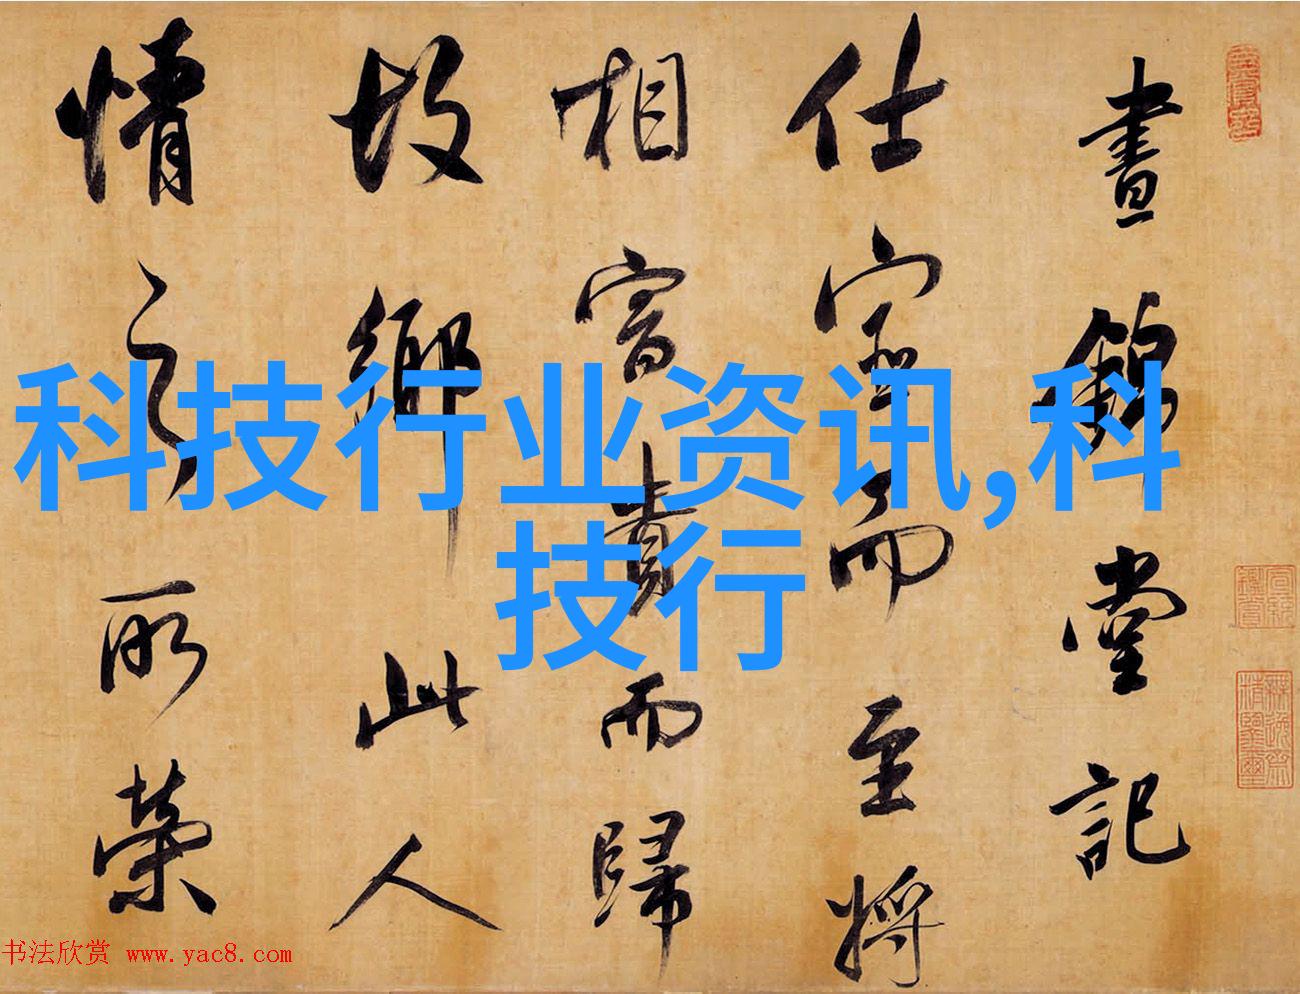 晝錦堂記
仕宦而至將
相富貴而歸
故鄉此人
情之所榮
科技行业资讯,科
技行
书法欣赏 www.yac8.com